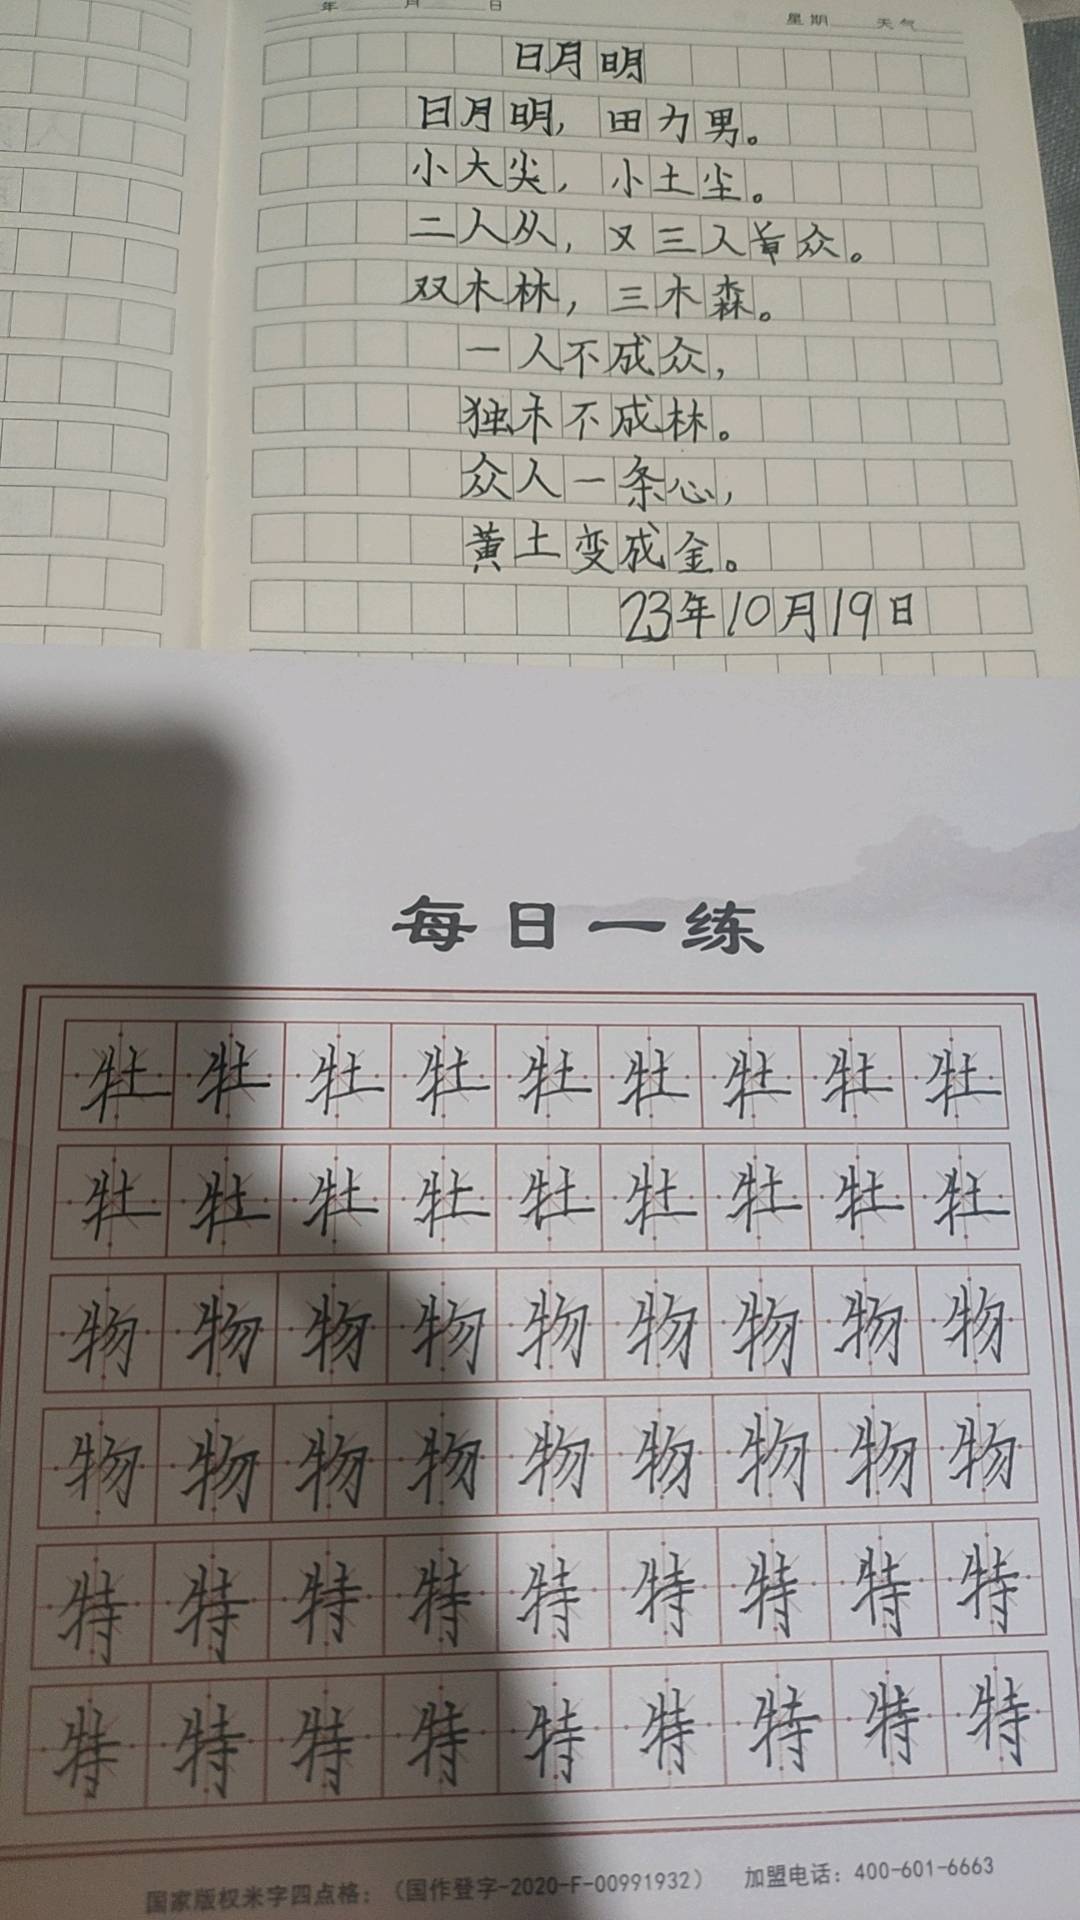 年 月 日 星期 天气
日月明
日月明,田力男。
小大尖,小土尘。
二人从,又三入众。
双木林,三木森。
一人不成众,
独木不成林。
众人一条心,
黄土变成金。
23年10月19日
每日一练
牡牡牡牡牡牡牡牡牡
牡牡牡牡牡牡牡牡牡
物物物物物物物物物
物物物物物物物物物
特特特特特特特特特
特特特特特特特特特
国家版权米字四点格:(国作登字-2020-F-00991932) 加盟电话:400-601-6663